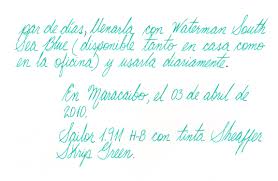 par de días, llenarla con Waterman South
Sea Blue (disponible tanto en casa como
en la oficina) y usarla diariamente.
En Maracaibo, el 03 de abril de
2010.
Sailor 1911 H-B con tinta Sheaffer
Skrip Green.